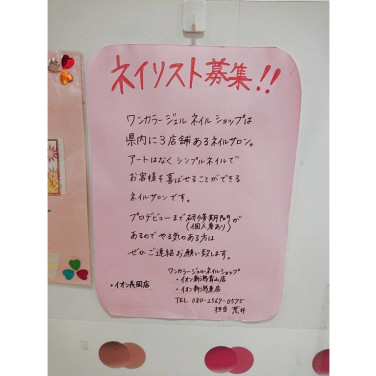 ネイリスト募集!!
ワンカラージェルネイルショップは
県内に3店舗あるネイルサロン。
アートはなくシンプルネイルで
お客様を喜ばせることができる
ネイルサロンです。
プロデビューまで研修期間が
(個人差あり)
あるのでやる気のある方は
ぜひご連絡お願い致します。
ワンカラージェルネイルショップ
・イオン長岡店
・イオン新潟青山店
・イオン新潟東店
TEL 080-2569-0575
担当 荒井